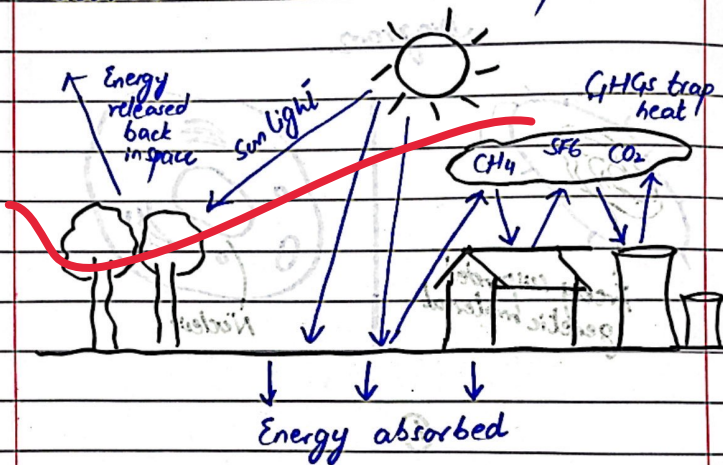 Energy
released
back
in space
Sunlight
GHGs trap
heat
CH4 SF6 CO2
Energy absorbed